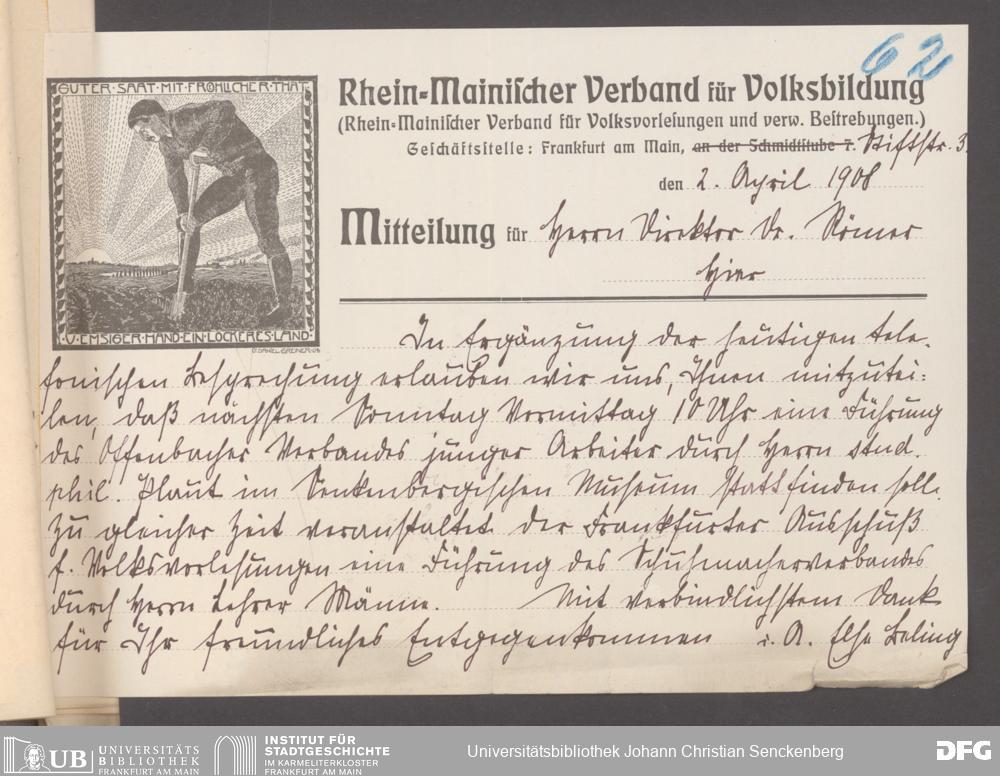 62
GUTER·SAAT·MIT·FRÖHLICHER·THAT
·U·EMSIGER·HAND·EIN·LOCKERES·LAND·
Rhein-Mainischer Verband für Volksbildung
(Rhein-Mainischer Verband für Volksvorlesungen und verw. Bestrebungen.)
Geschäftsstelle: Frankfurt am Main, an der Schmidtstube 7. Stiftstr. 3.
den 2. April 1908
Mitteilung für Herrn Direktor Dr. Römer
Hier
In Ergänzung der heutigen tele-
fonischen Besprechung erlauben wir uns, Ihnen mitzutei-
len, daß nächsten Sonntag Vormittag 10 Uhr eine Führung
des Offenbacher Verbandes junger Arbeiter durch Herrn stud.
phil. Plaut im Senkenbergischen Museum stattfinden soll.
Zu gleicher Zeit veranstaltet der Frankfurter Ausschuß
f. Volksvorlesungen eine Führung des Schuhmacherverbandes
durch Herrn Lehrer Männe. Mit verbindlichstem Dank
für Ihr freundliches Entgegenkommen i. A. Else Beling
UB UNIVERSITÄTS
BIBLIOTHEK
FRANKFURT AM MAIN
INSTITUT FÜR
STADTGESCHICHTE
IM KARMELITERKLOSTER
FRANKFURT AM MAIN
Universitätsbibliothek Johann Christian Senckenberg
DFG